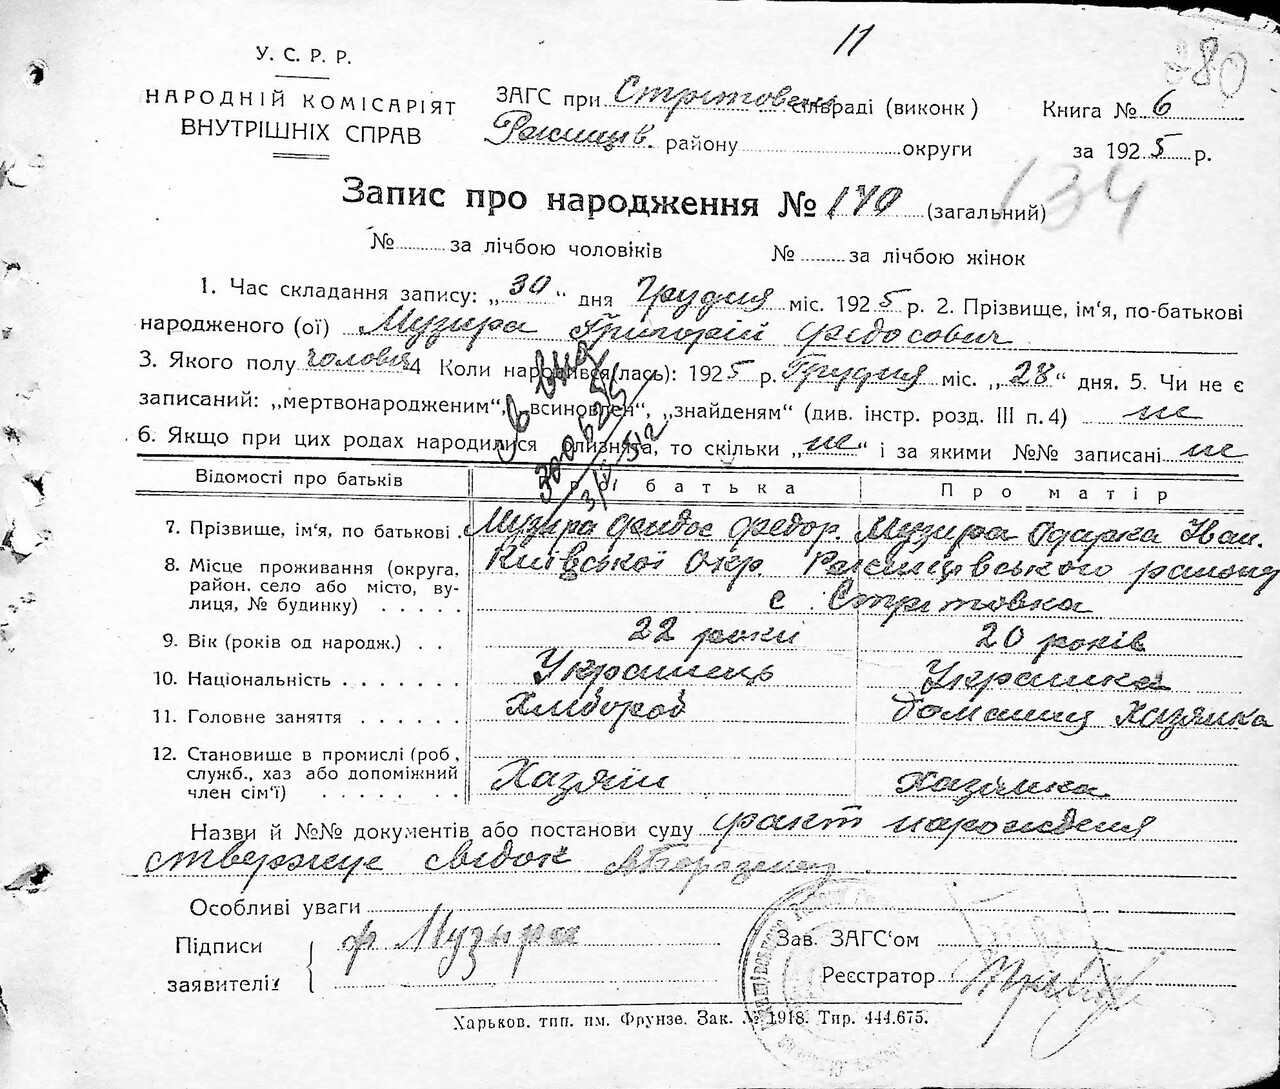 11
280
У. С. Р. Р.
НАРОДНІЙ КОМІСАРІЯТ
ВНУТРІШНІХ СПРАВ
ЗАГС при Стрітовець сільраді (виконк)
Ракиців. району округи
Книга № 6
за 1925 р.
134
Запис про народження № 140 (загальний)
№ за лічбою чоловіків № за лічбою жінок
1. Час складання запису: „30“ дня Грудня міс. 1925 р. 2. Прізвище, ім‘я, по-батькові
народженого (ої) Музира Григорій Федосович
3. Якого полу чоловіч 4 Коли народився(лась): 1925 р. Грудня міс. „28“ дня. 5. Чи не є
записаний: „мертвонародженим“, „всиновлен“, „знайденям“ (див. інстр. розд. III п. 4) не
6. Якщо при цих родах народилися близнята, то скільки „не“ і за якими №№ записані не
Відомості про батьків Про батька Про матір
7. Прізвище, ім‘я, по батькові Музира Фидос Федор. Музира Одарка Іван.
8. Місце проживання (округа, Київської Окр. Ракицівського району
район. село або місто, ву- с. Стрітовка
лиця, № будинку)
9. Вік (років од народж.) 22 роки 20 років
10. Національність Украинець Украинка
11. Головне заняття Хлібороб Домашня Хазяйка
12. Становище в промислі (роб,
служб., хаз або допоміжний Хазяїн Хазяйка
член сім‘ї)
Назви й №№ документів або постанови суду факт народження
ствержує свідок
Особливі уваги
Підписи
заявителів
ф Музыра
Зав. ЗАГС‘ом
Реєстратор
Харьков. тип. им. Фрунзе. Зак. № 1918. Тир. 444.675.